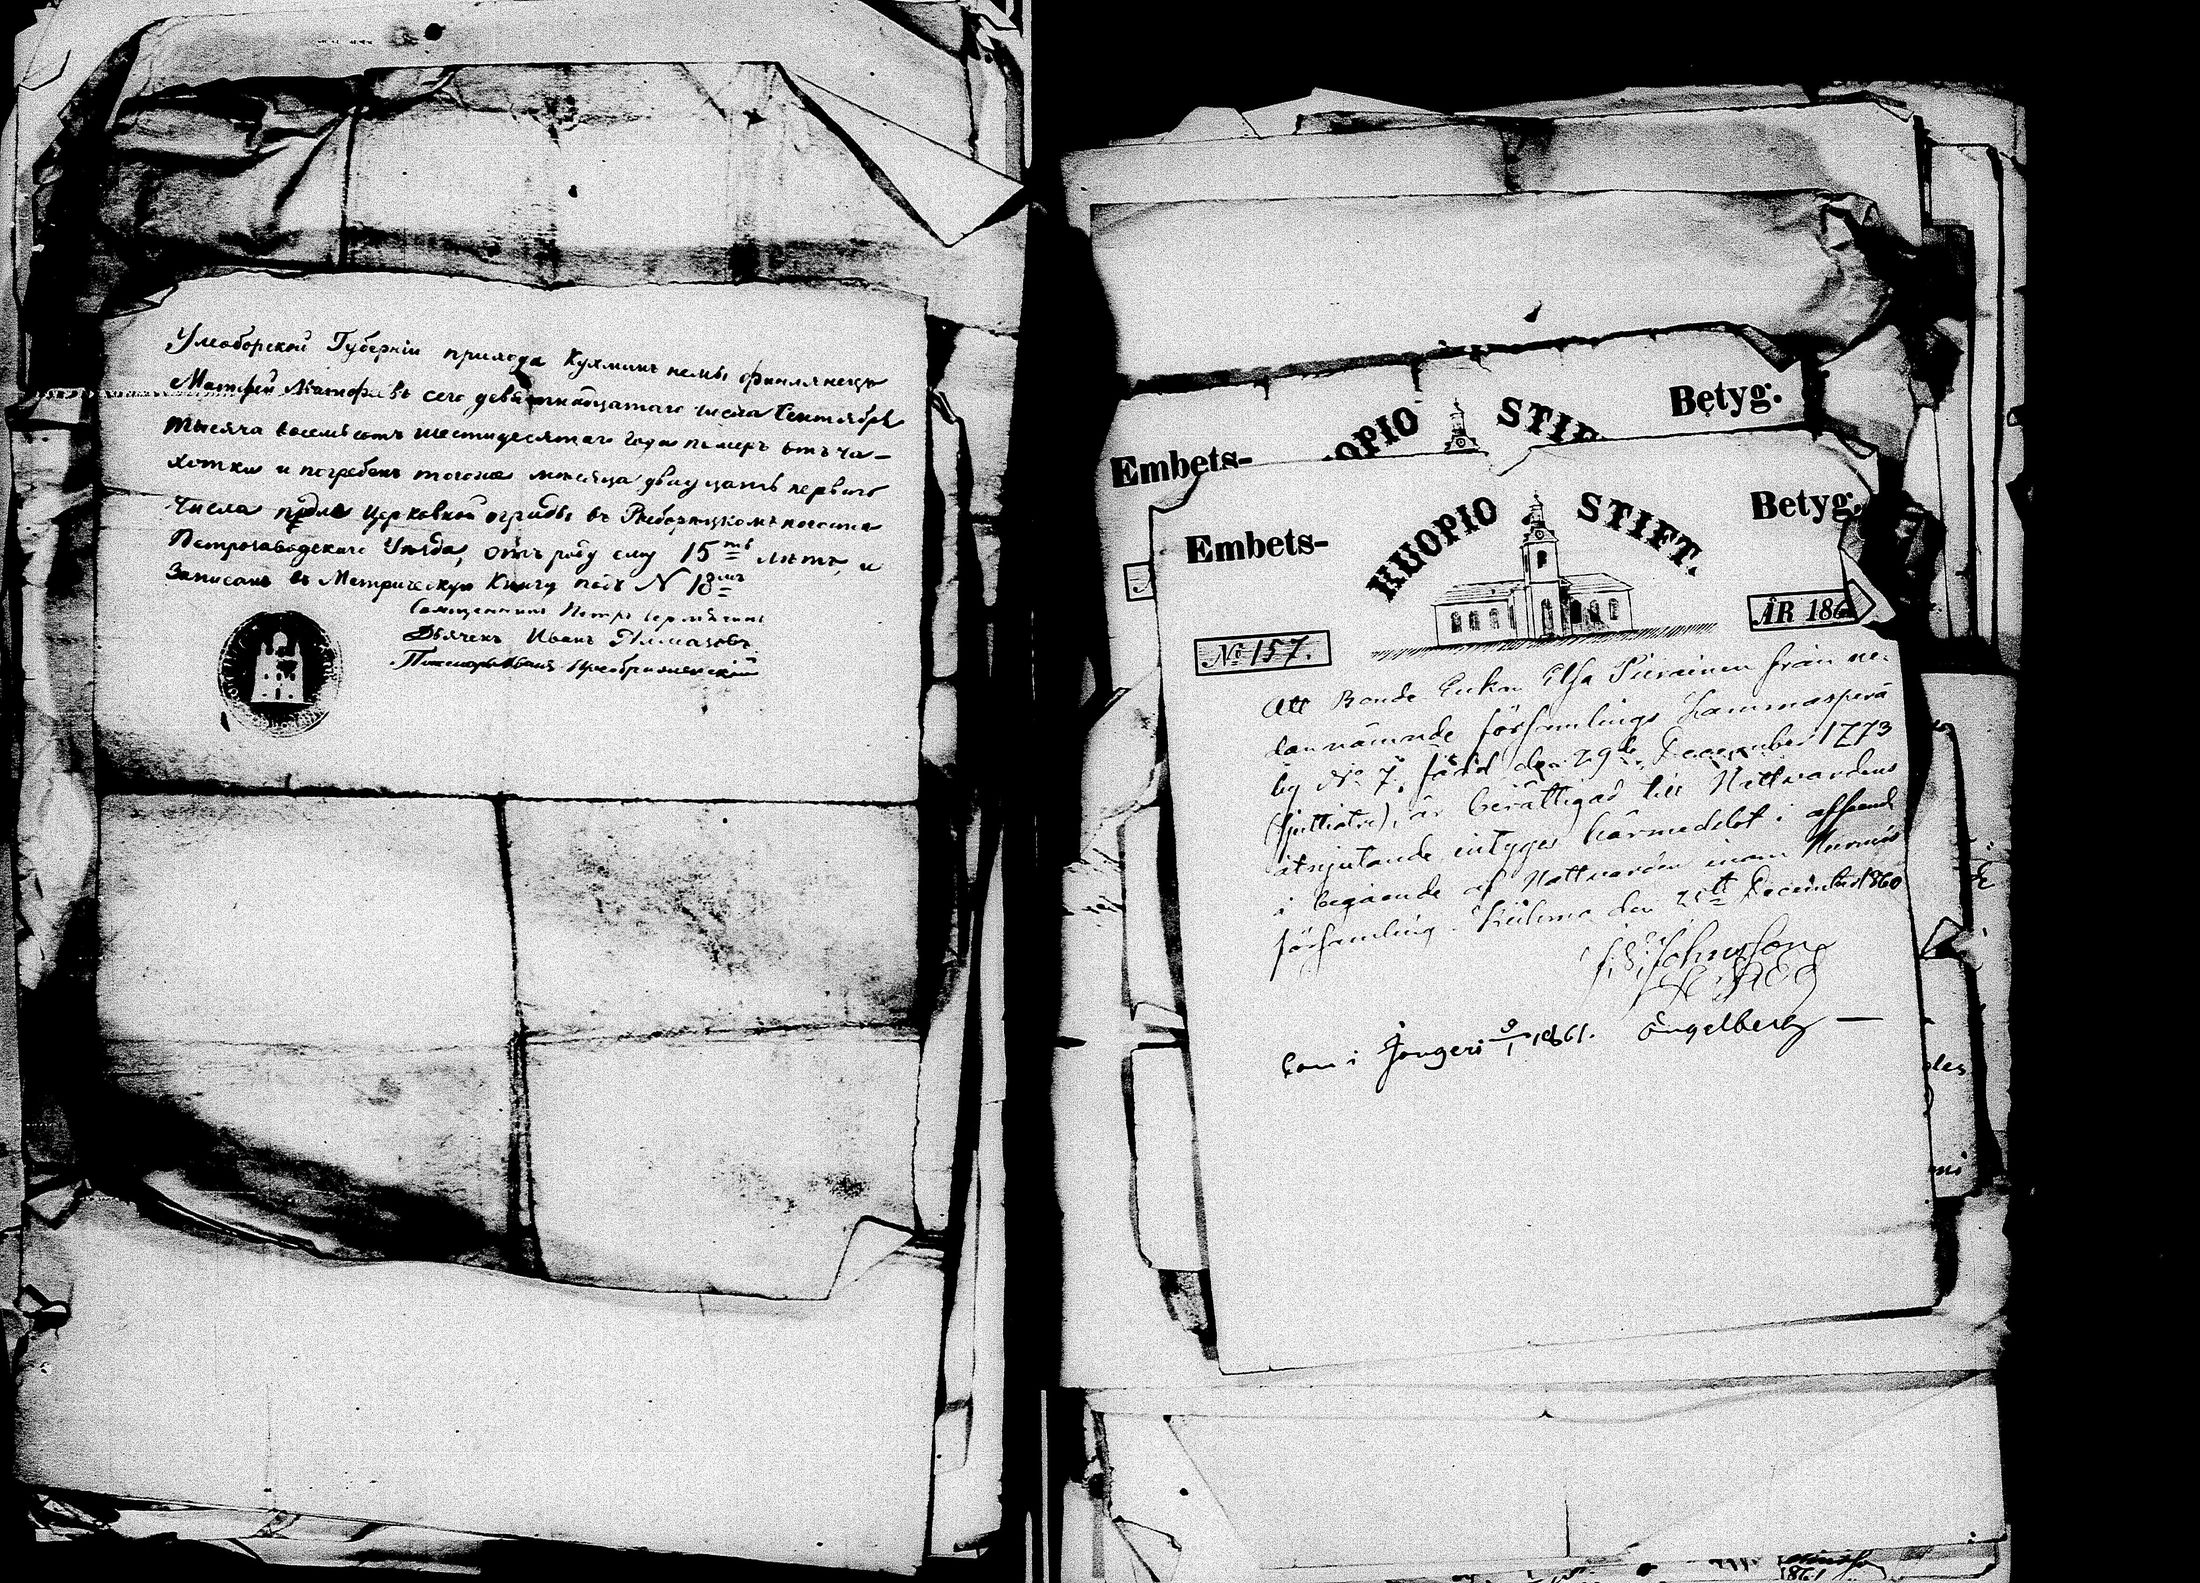 Улеаборской Губерніи прихода Кухминъ неми финлянецъ
Матфей сего девятнадцатаго числа Сентября
тысяча восемьсотъ шестидесятаго года померъ отъ ча-
хотки и погребенъ тогоже мѣсяца двадцать перваго
числа церковной ограды въ погоста
Петрозаводскаго Уѣзда, отъ роду ему 15ть лѣтъ, и
Записанъ въ Метрическую Книгу подъ N 18мъ
Священникъ Петръ
Дьячекъ Иванъ
Пономарь Иванъ Преображенскій
Embets-
KUOPIO STIFT
Betyg.
Embets-
KUOPIO STIFT.
Betyg.
No 157.
ÅR 186
Att Bonde Enkan Elsa Piirainen från ne-
dannämnde församlings Lammasperä
by No 7, född den 29de December 1773
är berättigad till Nattvardens
åtnjutande intygas härmedelst i afseende
å begående af Nattvarden inom Nurmis
församling. Kuhmo den December 1860
Johnsson
Com i Jongeri 9/1 1861. Engelberg —